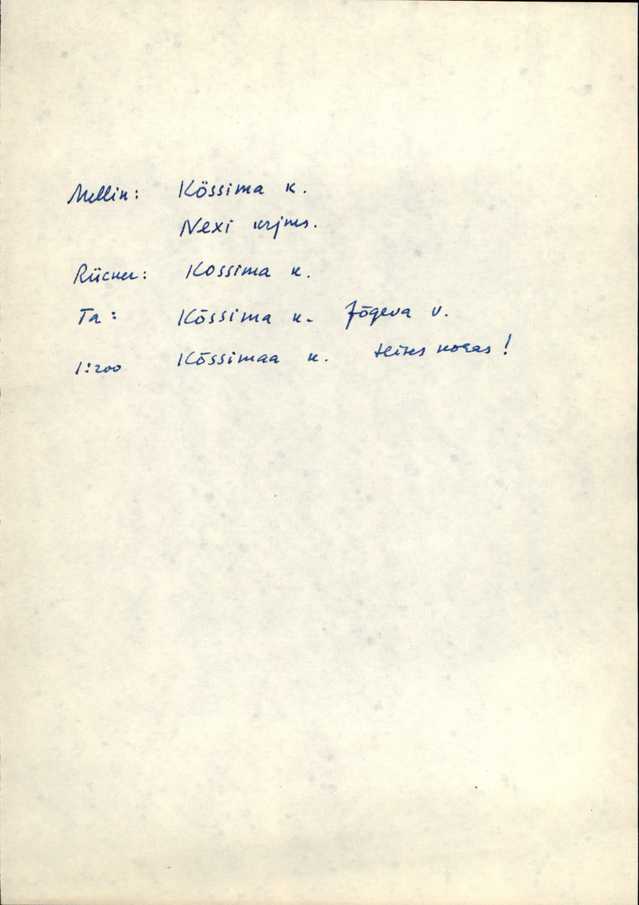 Mellin: Kössima k.
Nexi krjms.
Rücker: Kossima k.
Ta: Kõssima k. Jõgeva v.
1:200 Kõssimaa k. teises kohas!